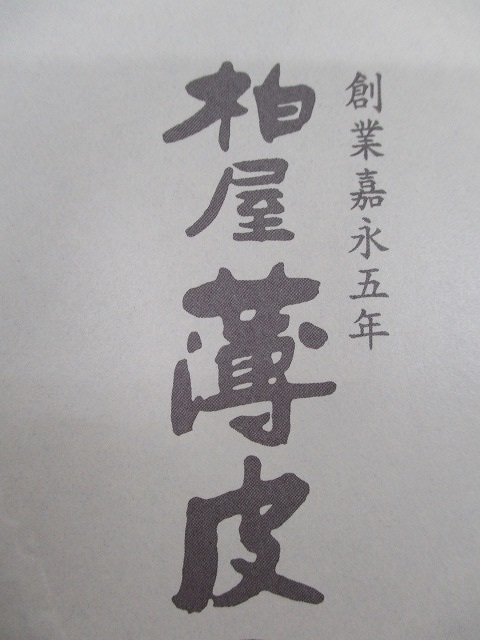 創業嘉永五年
柏屋薄皮